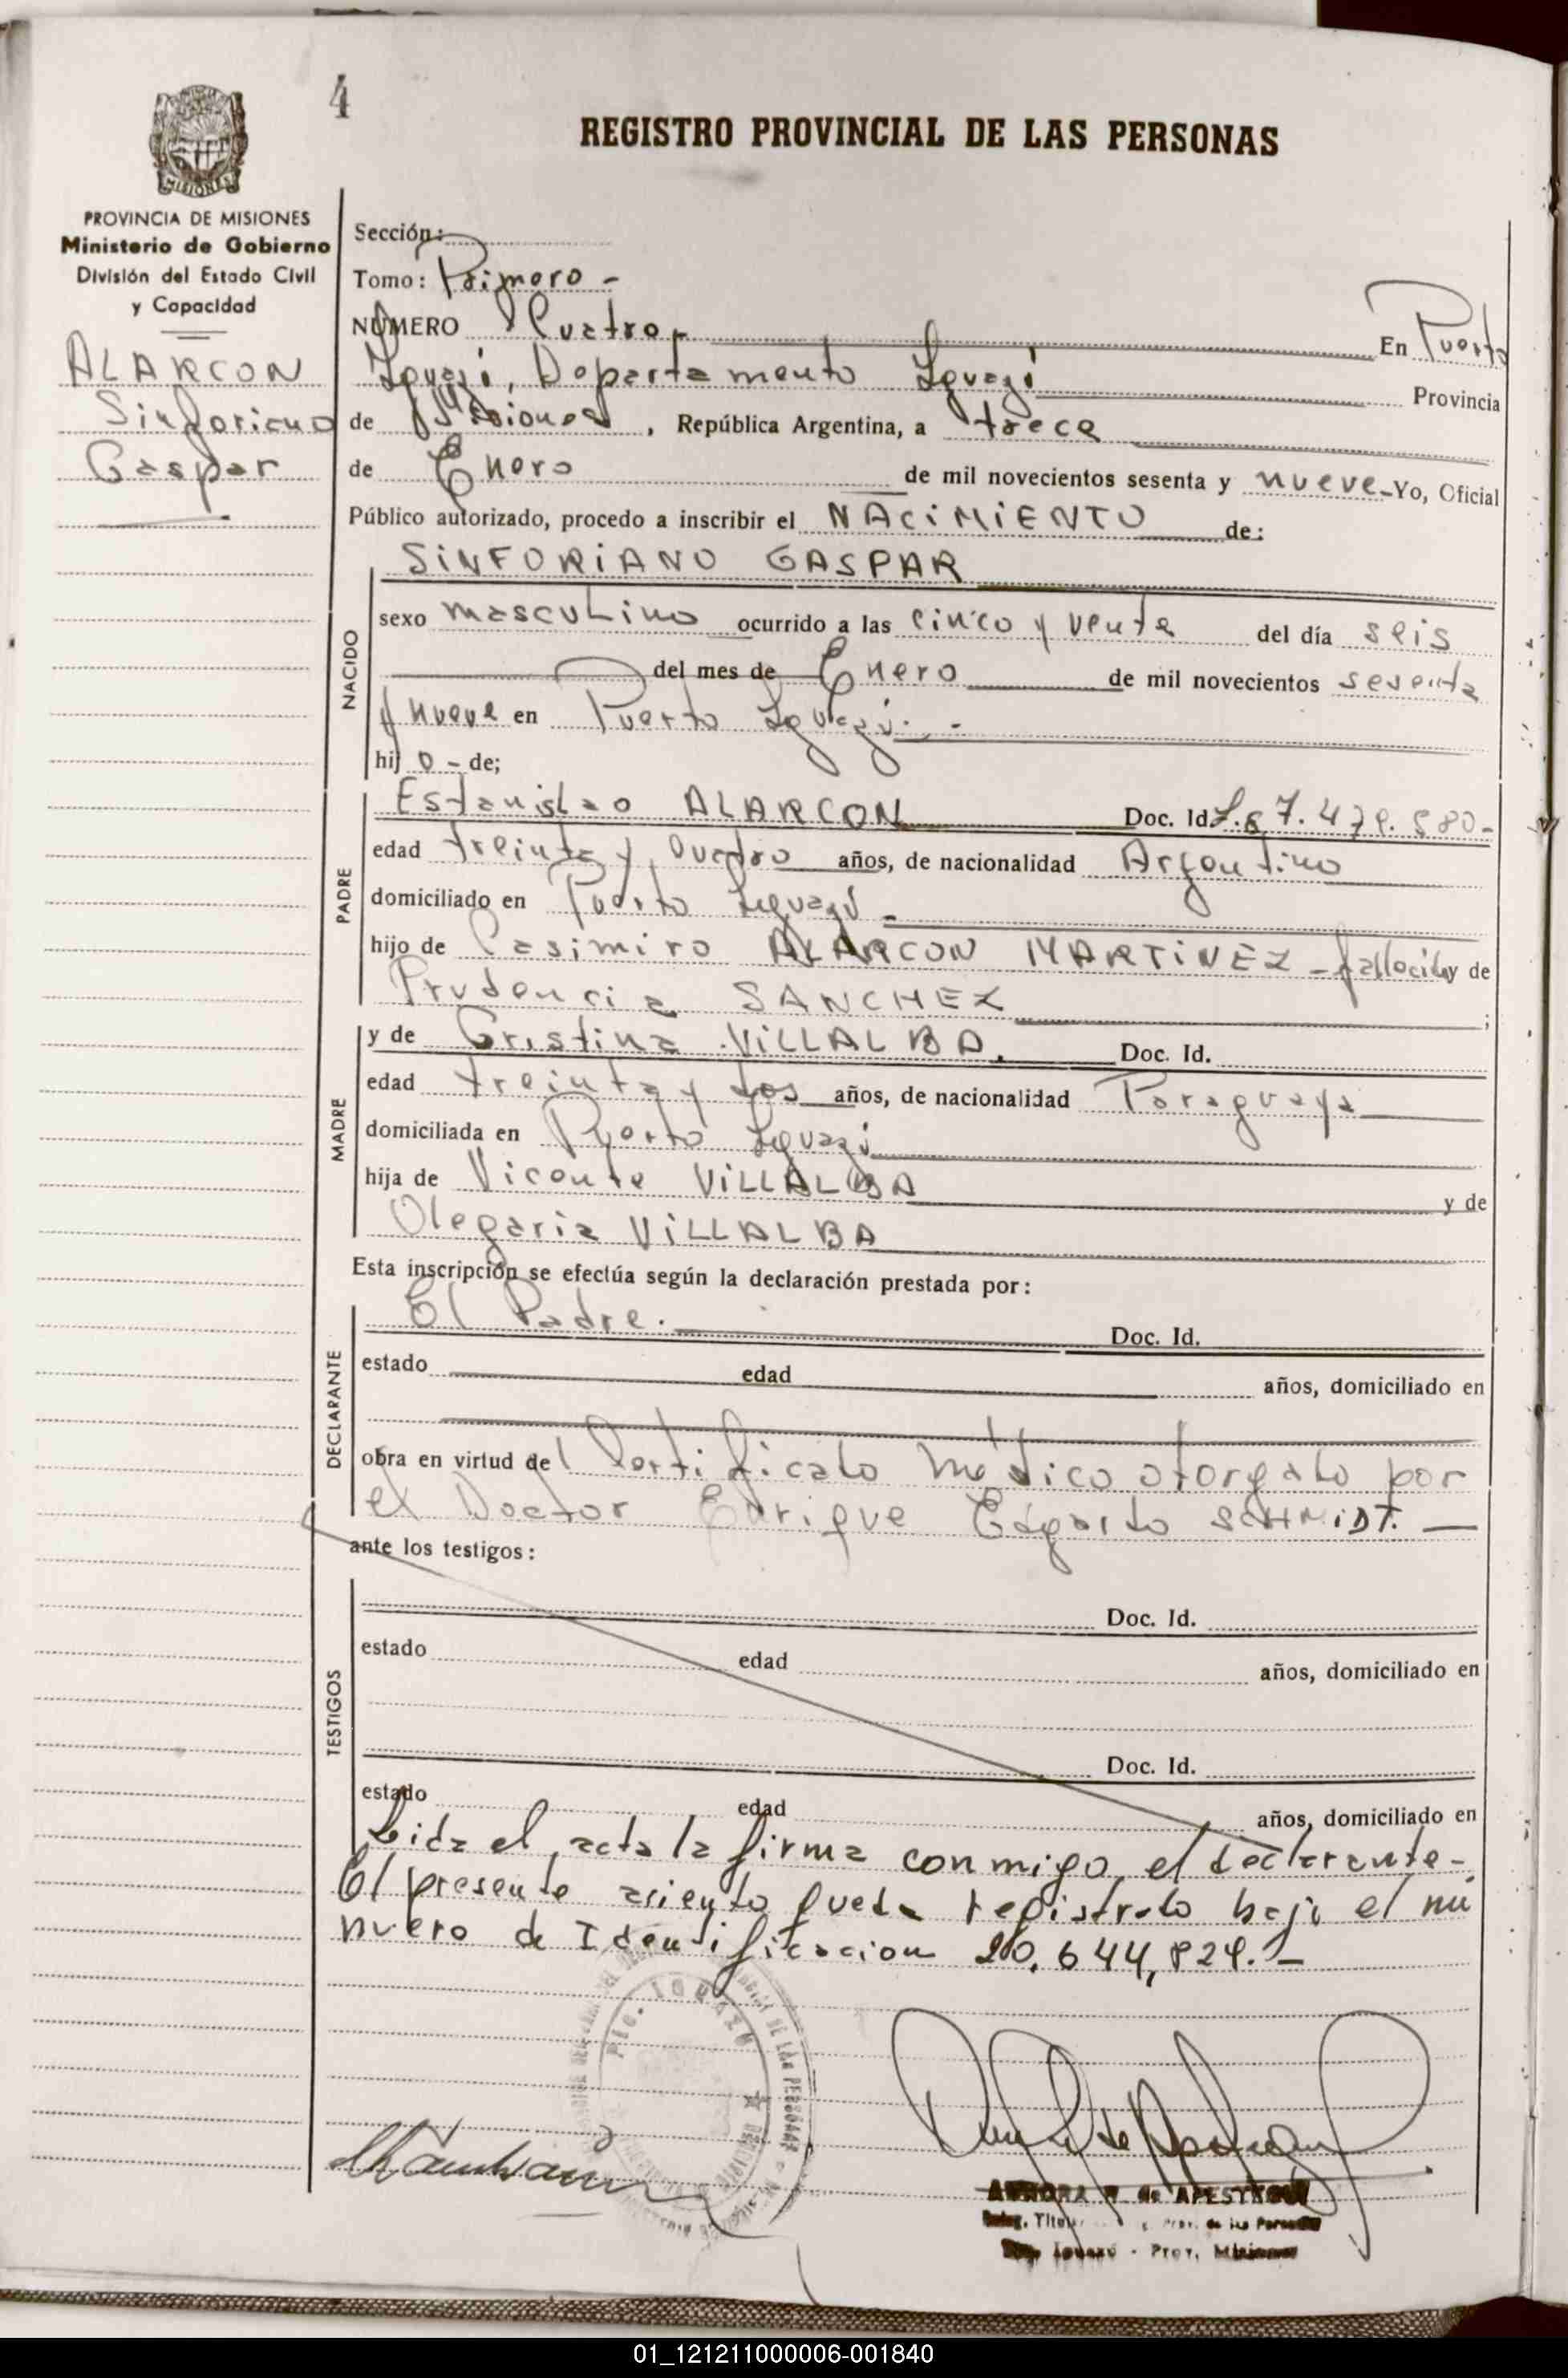 4
REGISTRO PROVINCIAL DE LAS PERSONAS
MISIONES
PROVINCIA DE MISIONES
Ministerio de Gobierno
División del Estado Civil
y Capacidad
ALARCON
Sinforiano
Gaspar
Sección:
Tomo: Primero -
NÚMERO Cuatro - En Puerto
Iguazú, Departamento Iguazú Provincia
de Misiones, República Argentina, a trece
de Enero de mil novecientos sesenta y nueve - Yo, Oficial
Público autorizado, procedo a inscribir el NACIMIENTO de:
SINFORIANO GASPAR
NACIDO
sexo masculino ocurrido a las cinco y veinte del día seis
del mes de Enero de mil novecientos sesenta
y nueve en Puerto Iguazú. -
hij o - de;
PADRE
Estanislao ALARCON Doc. Id.
edad treinta y cuatro años, de nacionalidad Argentino
domiciliado en Puerto Iguazú -
hijo de Casimiro ALARCON MARTINEZ - y de
Prudencia SANCHEZ ;
MADRE
y de Cristina VILLALBA. Doc. Id.
edad treinta y dos años, de nacionalidad Paraguaya
domiciliada en Puerto Iguazú
hija de Vicente VILLALBA y de
Olegaria VILLALBA
Esta inscripción se efectúa según la declaración prestada por:
DECLARANTE
El Padre. Doc. Id.
estado edad años, domiciliado en
obra en virtud del Certificado médico otorgado por
el Doctor Enrique Edgardo SCHMIDT. —
ante los testigos:
TESTIGOS
Doc. Id.
estado edad años, domiciliado en
Doc. Id.
estado edad años, domiciliado en
Leida el acta la firma conmigo el declarante -
El presente asiento queda registrado bajo el nú
mero de Identificacion 20.644,824. -
AURORA de APESTEGUI
Deleg. Titular Prov. de las Personas
Iguazú - Prov. Misiones
01_121211000006-001840